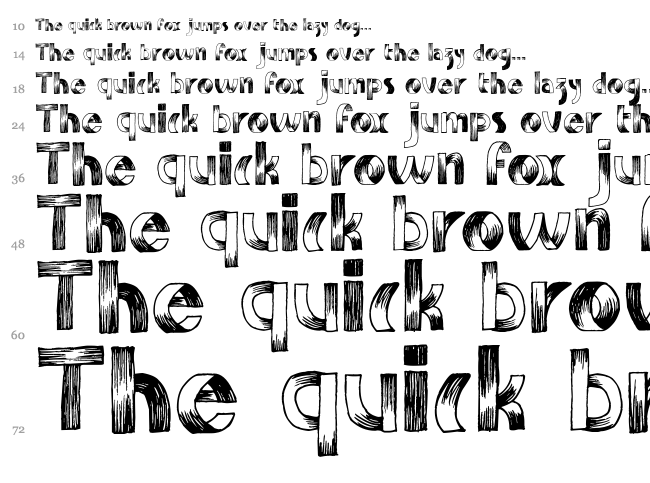 10 The quick brown fox jumps over the lazy dog...
14 The quick brown fox jumps over the lazy dog...
18 The quick brown fox jumps over the lazy dog..
24 The quick brown fox jumps over th
36 The quick brown fox ju
48 The quick brown
60 The quick brow
72 The quick br